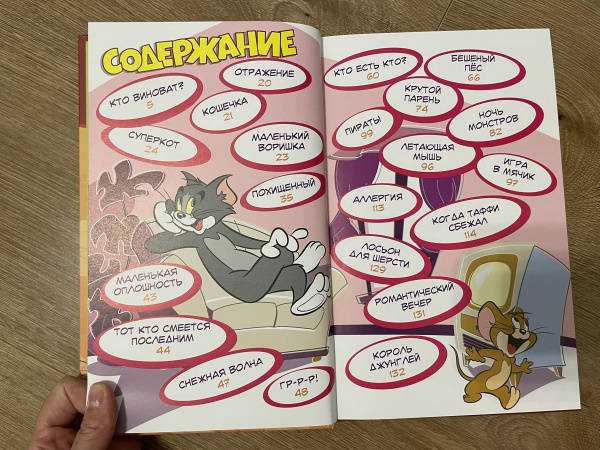 СОДЕРЖАНИЕ
КТО ВИНОВАТ?
5
ОТРАЖЕНИЕ
20
КОШЕЧКА
21
СУПЕРКОТ
24
МАЛЕНЬКИЙ
ВОРИШКА
23
ПОХИЩЕННЫЙ
35
МАЛЕНЬКАЯ
ОПЛОШНОСТЬ
43
ТОТ КТО СМЕЕТСЯ
ПОСЛЕДНИМ
44
СНЕЖНАЯ ВОЛНА
47
ГР-Р-Р!
48
КТО ЕСТЬ КТО?
60
БЕШЕНЫЙ
ПЁС
66
КРУТОЙ
ПАРЕНЬ
74
НОЧЬ
МОНСТРОВ
82
ПИРАТЫ
99
ЛЕТАЮЩАЯ
МЫШЬ
96
ИГРА
В МЯЧИК
97
АЛЛЕРГИЯ
113
КОГДА ТАФФИ
СБЕЖАЛ
114
ЛОСЬОН
ДЛЯ ШЕРСТИ
129
РОМАНТИЧЕСКИЙ
ВЕЧЕР
131
КОРОЛЬ
ДЖУНГЛЕЙ
132